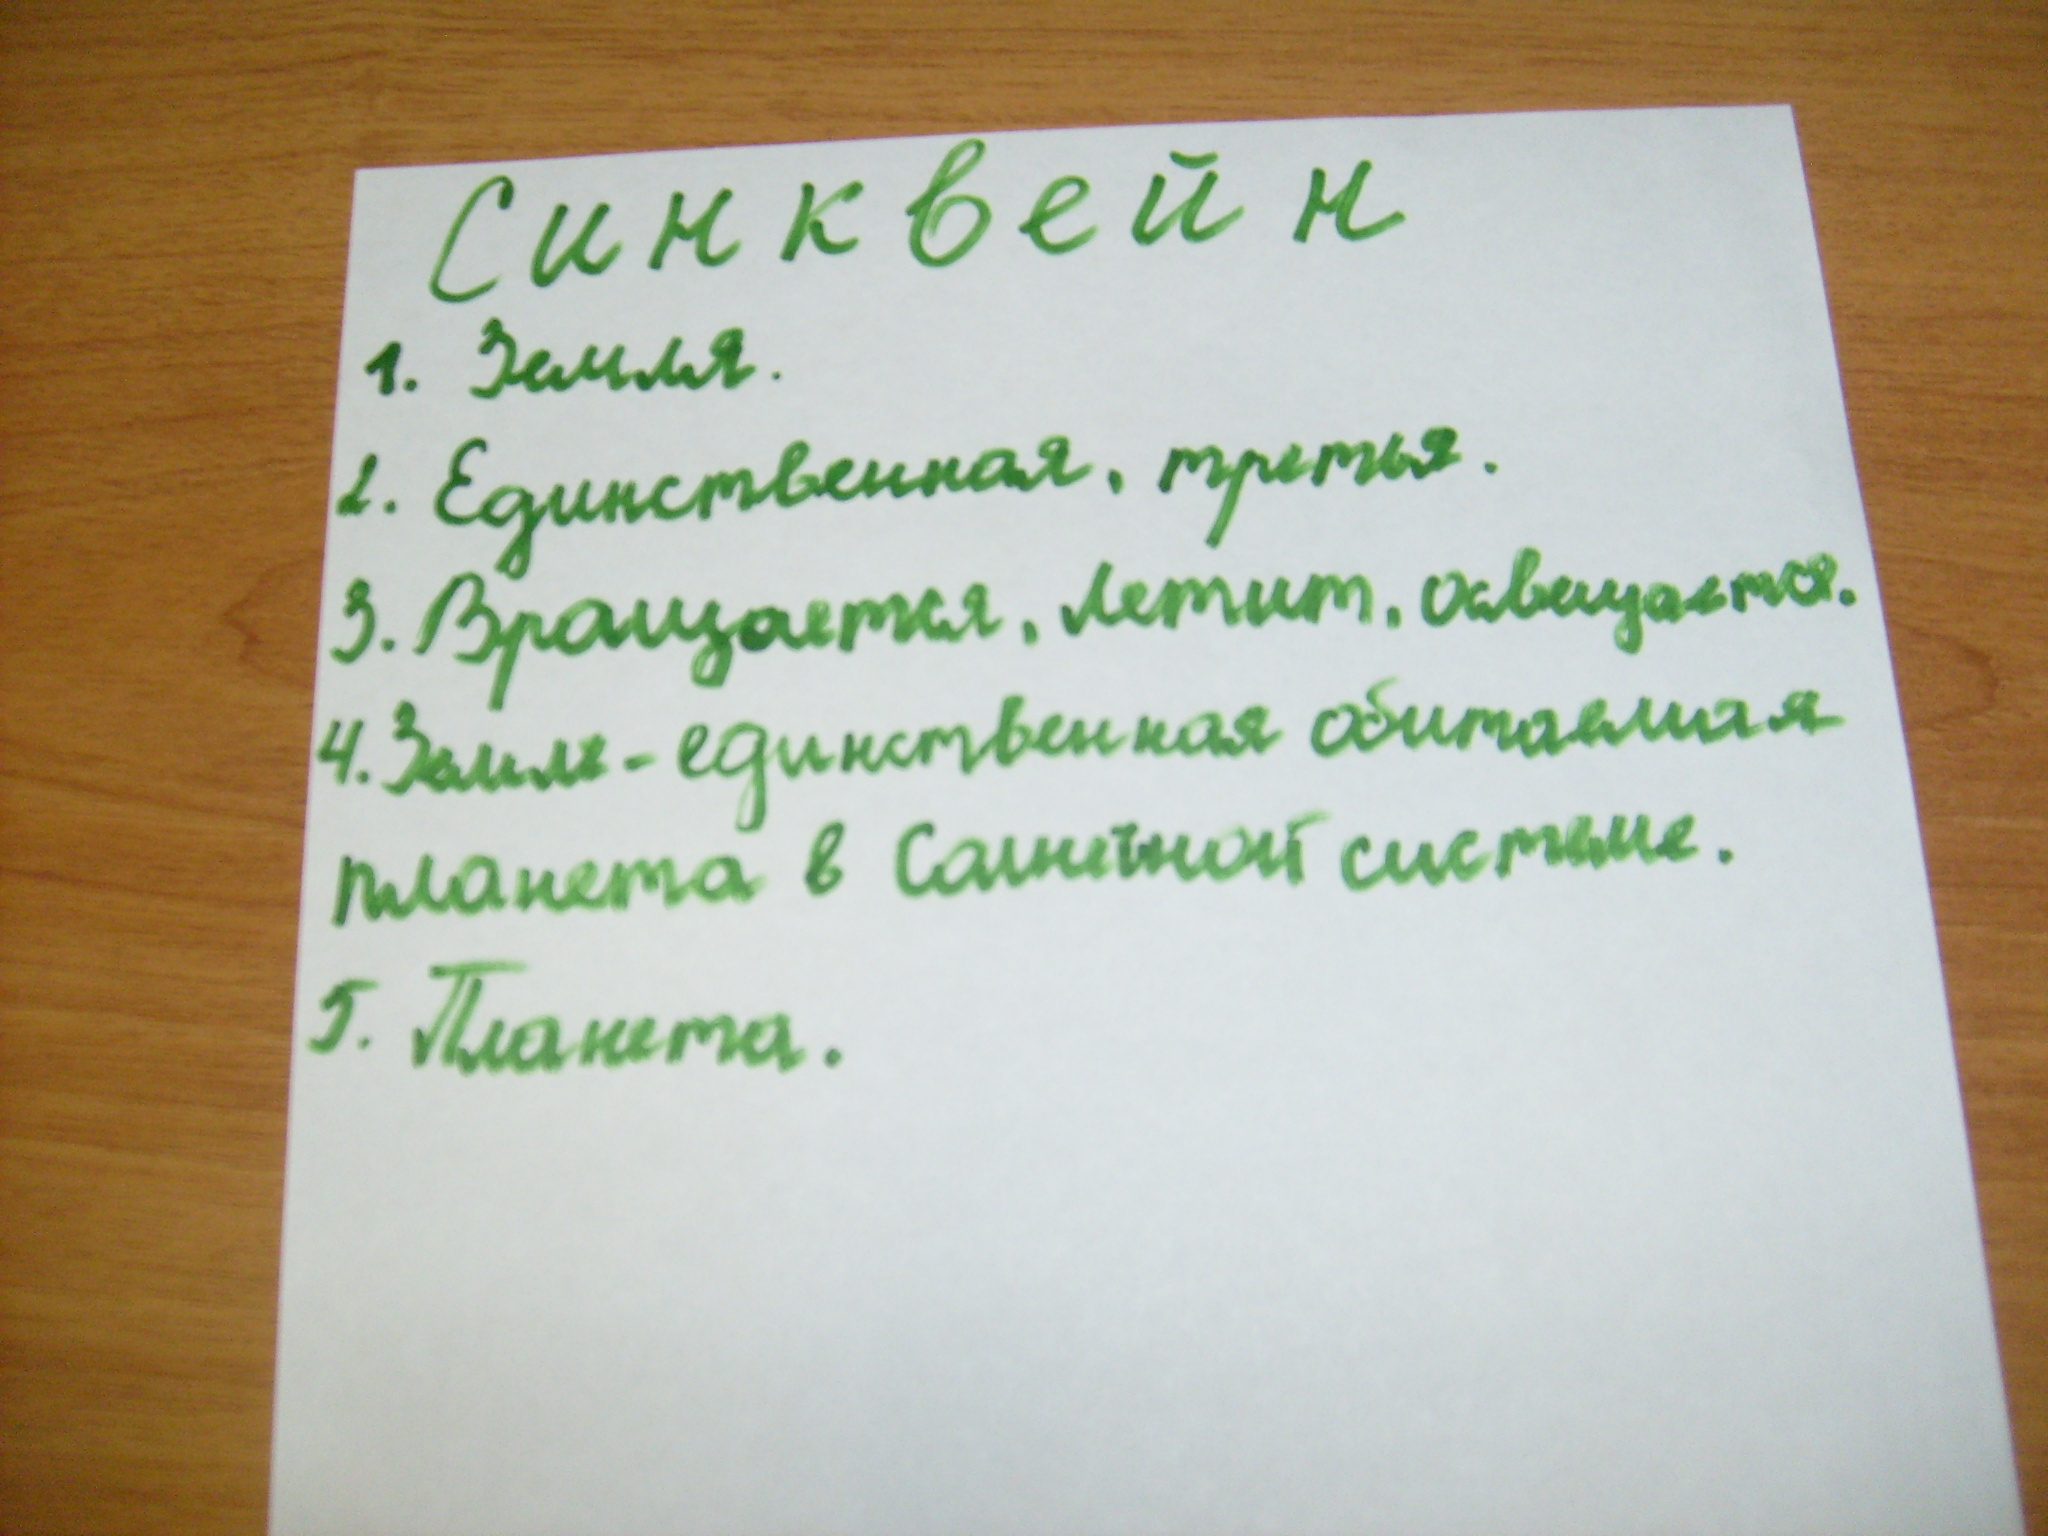 Синквейн
1. Земля.
2. Единственная, третья.
3. Вращается, летит, освещается.
4. Земля - единственная обитаемая
планета в Солнечной системе.
5. Планета.